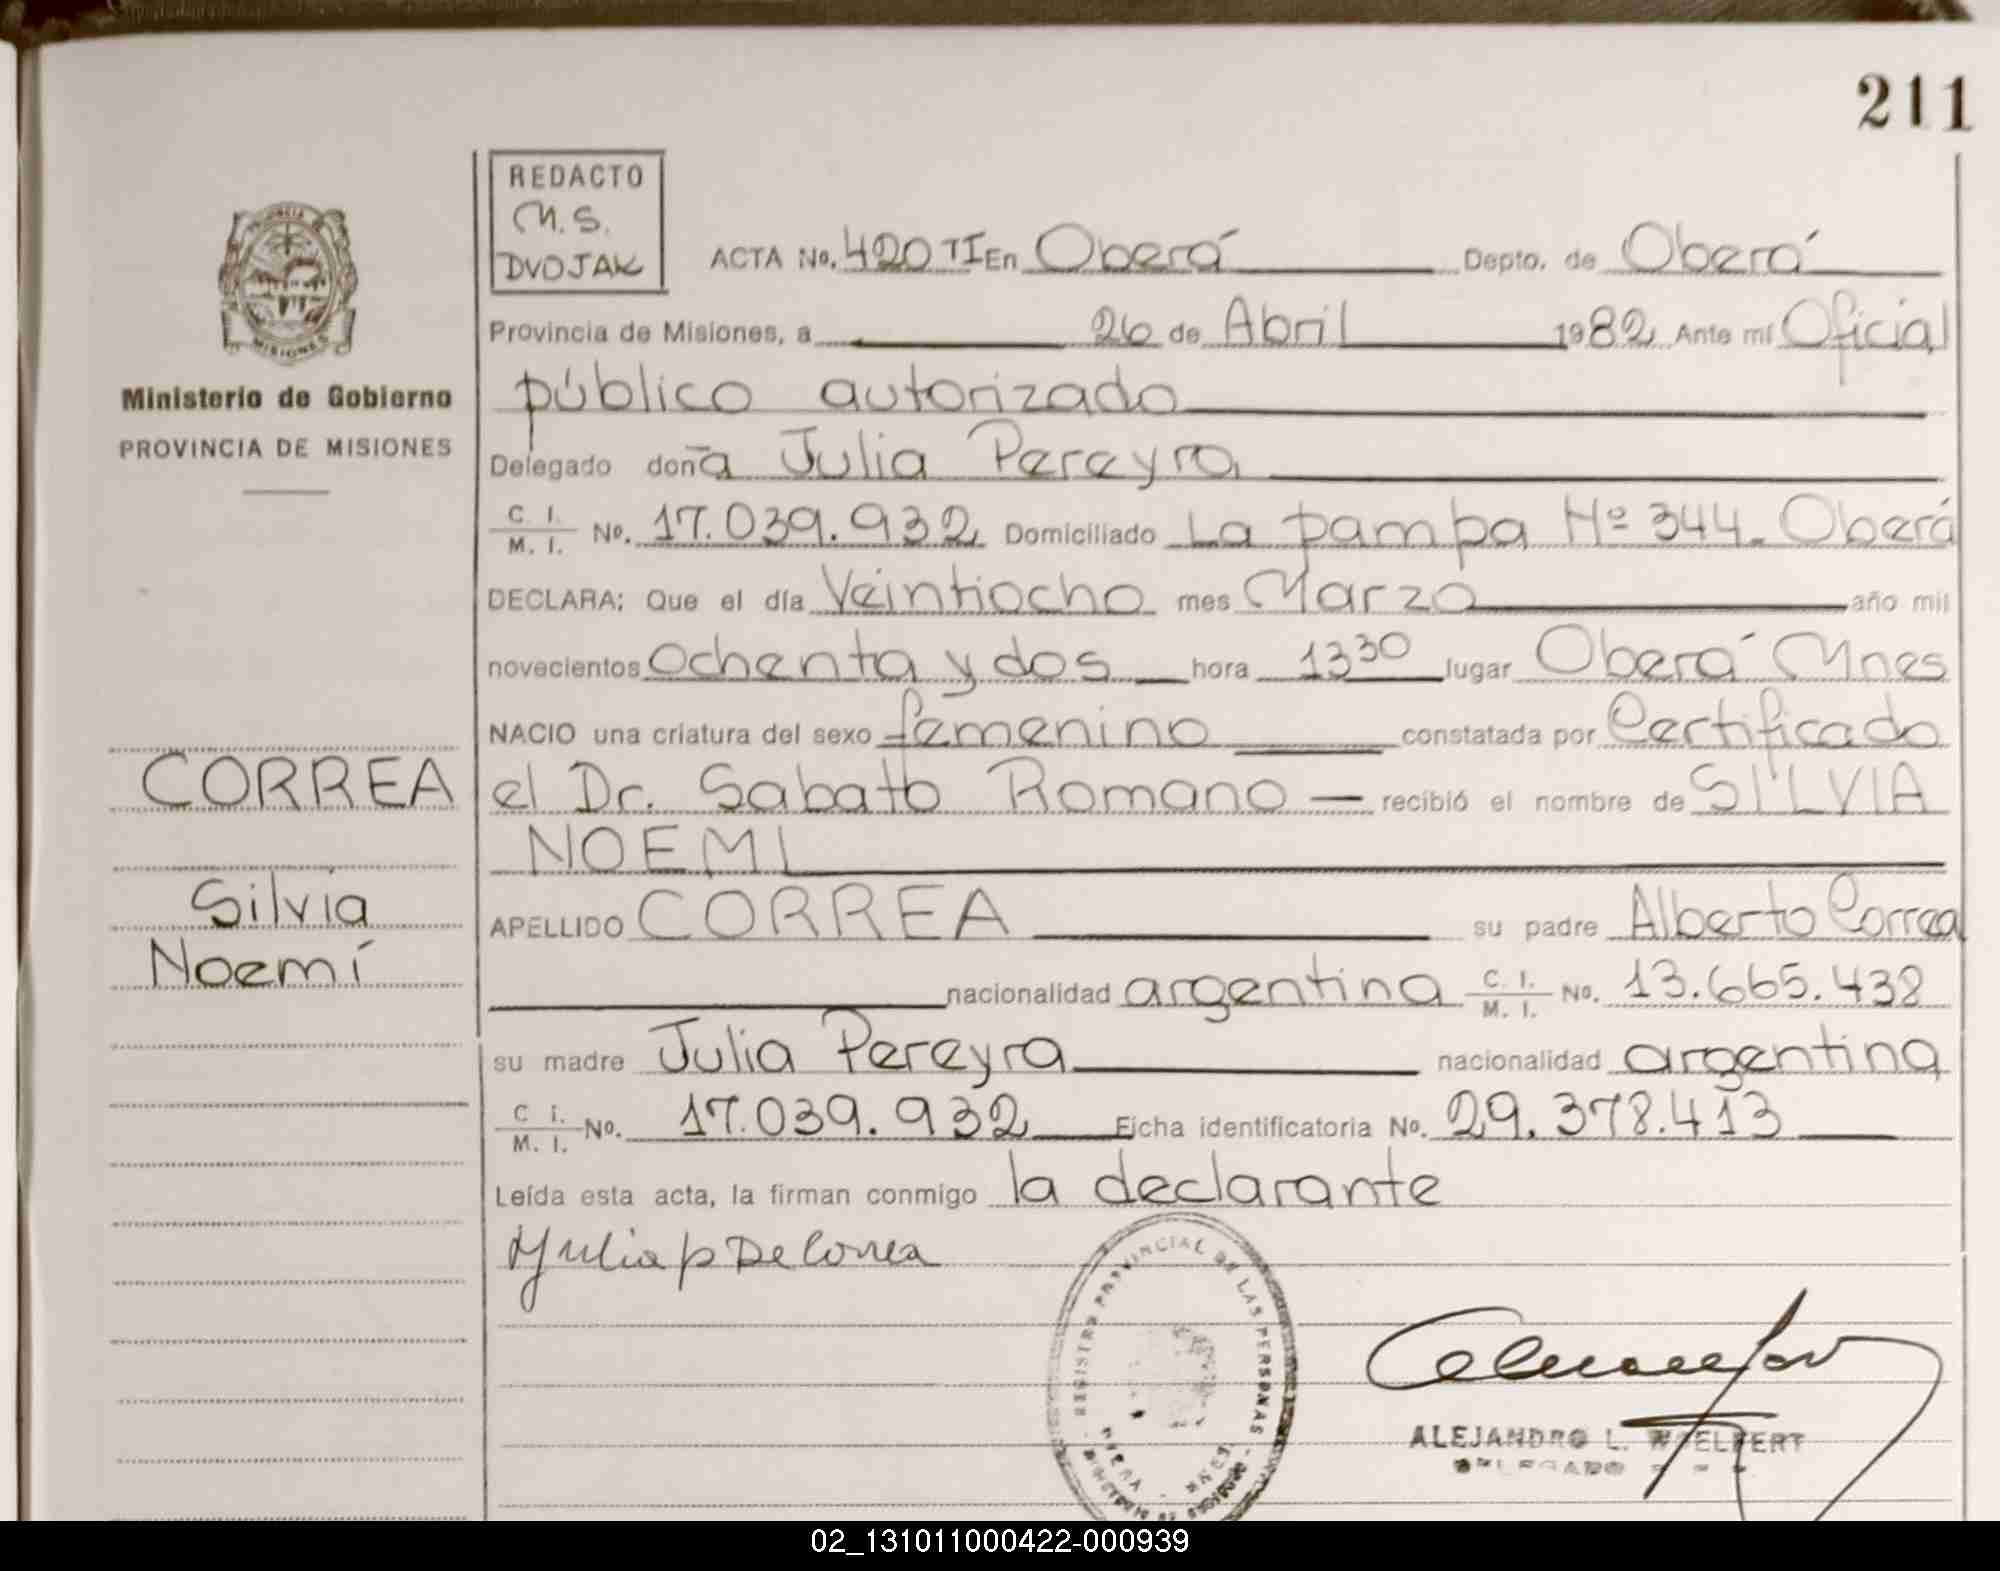 211
REDACTO
M.S.
DVOJAK
PROVINCIA
MISIONES
Ministerio de Gobierno
PROVINCIA DE MISIONES
ACTA No. 420 TI En Oberá Depto. de Oberá
Provincia de Misiones, a 26 de Abril 1982 Ante mí Oficial
público autorizado
Delegado doña Julia Pereyra
C. I. / M. I. No. 17.039.932 Domiciliado La pampa Nº 344. Oberá
DECLARA: Que el día Veintiocho mes Marzo año mil
novecientos ochenta y dos hora 13 30 lugar Oberá Mnes
NACIO una criatura del sexo femenino constatada por Certificado
el Dr. Sabato Romano — recibió el nombre de SILVIA
NOEMI
APELLIDO CORREA su padre Alberto Correa
nacionalidad argentina C. I. / M. I. No. 13.665.438
su madre Julia Pereyra nacionalidad argentina
C. I. / M. I. No. 17.039.932 Ficha identificatoria No. 29.378.413
Leída esta acta, la firman conmigo la declarante
Julia p De Correa
CORREA
Silvia
Noemí
REGISTRO PROVINCIAL DE LAS PERSONAS
ALEJANDRO L. WOELFERT
DELEGADO
02_131011000422-000939